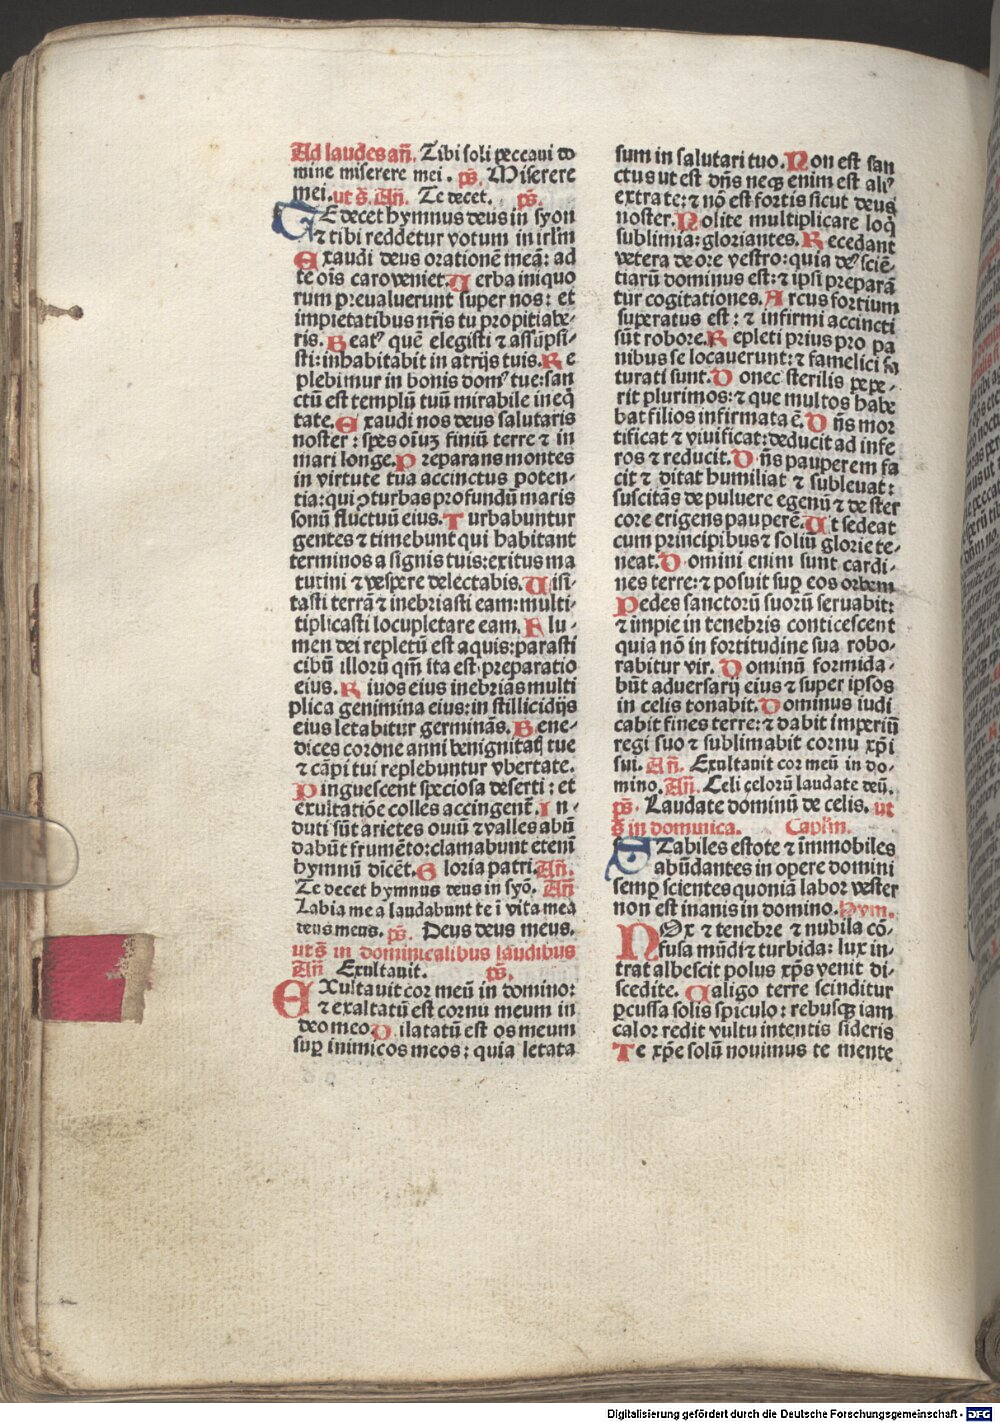 Ad laudes añ. Tibi soli peccaui do
mine miserere mei. ps̄. Miserere
mei. ut s̄. Añ. Te decet. ps̄.
TE decet hymnus deus in syon
⁊ tibi reddetur votum in irl̄m
Exaudi deus orationē meā: ad
te oīs caro veniet. Uerba iniquo
rum preualuerunt super nos: et
impietatibus nr̄is tu propitiabe⸗
ris. Beatꝰ quē elegisti ⁊ assūpsi⸗
sti: inhabitabit in atrijs tuis. Re
plebimur in bonis domꝰ tue: san
ctū est templū tuū mirabile in eq̄
tate. Exaudi nos deus salutaris
noster: spes oīuꝫ finiū terre ⁊ in
mari longe. Preparans montes
in virtute tua accinctus poten⸗
tia: qui ꝯturbas profundū maris
sonū fluctuū eius. Turbabuntur
gentes ⁊ timebunt qui habitant
terminos a signis tuis: exitus ma
tutini ⁊ vespere delectabis. Uisi⸗
tasti terrā ⁊ inebriasti eam: multi⸗
tiplicasti locupletare eam. Flu⸗
men dei repletū est aquis: parasti
cibū illorū qm̄ ita est preparatio
eius. Riuos eius inebrias multi
plica genimina eius: in stillicidijs
eius letabitur germinās. Bene⸗
dices corone anni benignitatꝭ tue
⁊ cāpi tui replebuntur vbertate.
Pinguescent speciosa deserti: et
exultatiōe colles accingent᷑. In⸗
duti sūt arietes ouiū ⁊ valles abū
dabūt frumēto: clamabunt etenī
hymnū dicēt. Gloria patri. Añ.
Te decet hymnus deus in syō. Añ
Labia mea laudabunt te ī vita mea
deus meus. ps̄. Deus deus meus.
ut s̄ in dominicalibus laudibus
Añ Exultauit. ps̄.
EXultauit cor meū in domino:
⁊ exaltatū est cornu meum in
deo meo. Dilatatū est os meum
suꝑ inimicos meos: quia letata
sum in salutari tuo. Non est san
ctus ut est dn̄s neqꝫ enim est aliꝰ
extra te: ⁊ nō est fortis sicut deus
noster. Nolite multiplicare loq̄
sublimia: gloriantes. Recedant
vetera de ore vestro: quia deꝰ sciē⸗
tiarū dominus est: ⁊ ipsi preparā
tur cogitationes. Arcus fortium
superatus est: ⁊ infirmi accincti
sūt robore. Repleti prius pro pa
nibus se locauerunt: ⁊ famelici sa
turati sunt. Donec sterilis pepe⸗
rit plurimos: ⁊ que multos habe
bat filios infirmata ē. Dn̄s mor
tificat ⁊ viuificat: deducit ad infe
ros ⁊ reducit. Dn̄s pauperem fa
cit ⁊ ditat humiliat ⁊ subleuat:
suscitās de puluere egenū ⁊ de ster
core erigens pauperē. Ut sedeat
cum principibus ⁊ soliū glorie te⸗
neat. Domini enim sunt cardi⸗
nes terre: ⁊ posuit suꝑ eos orbem
Pedes sanctorū suorū seruabit:
⁊ impie in tenebris conticescent
quia nō in fortitudine sua robo⸗
rabitur vir. Dominū formida⸗
būt aduersarij eius ⁊ super ipsos
in celis tonabit. Dominus iudi
cabit fines terre: ⁊ dabit imperiū
regi suo ⁊ sublimabit cornu xp̄i
sui. Añ. Exultauit cor meū in do⸗
mino. Añ. Celi celorū laudate deū.
ps̄. Laudate dominū de celis. ut
s̄ in dominica. Caplm̄.
STabiles estote ⁊ īmmobiles
abūdantes in opere domini
semꝑ scientes quoniā labor vester
non est inanis in domino. Hym.
NOx ⁊ tenebre ⁊ nubila cō⸗
fusa mūdi ⁊ turbida: lux in⸗
trat albescit polus xp̄s venit di⸗
scedite. Caligo terre scinditur
ꝑcussa solis spiculo: rebusqꝫ iam
calor redit vultu intentis sideris
Te xp̄e solū nouimus te mente
Digitalisierung gefördert durch die Deutsche Forschungsgemeinschaft - DFG